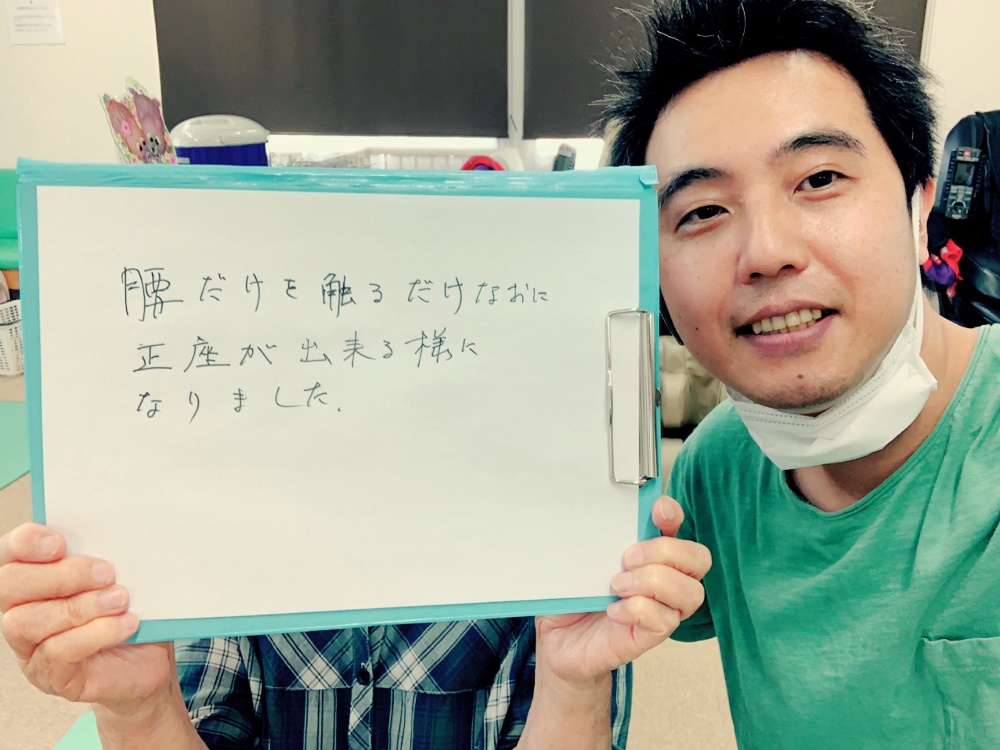 腰だけを触るだけなおに
正座が出来る様に
なりました.